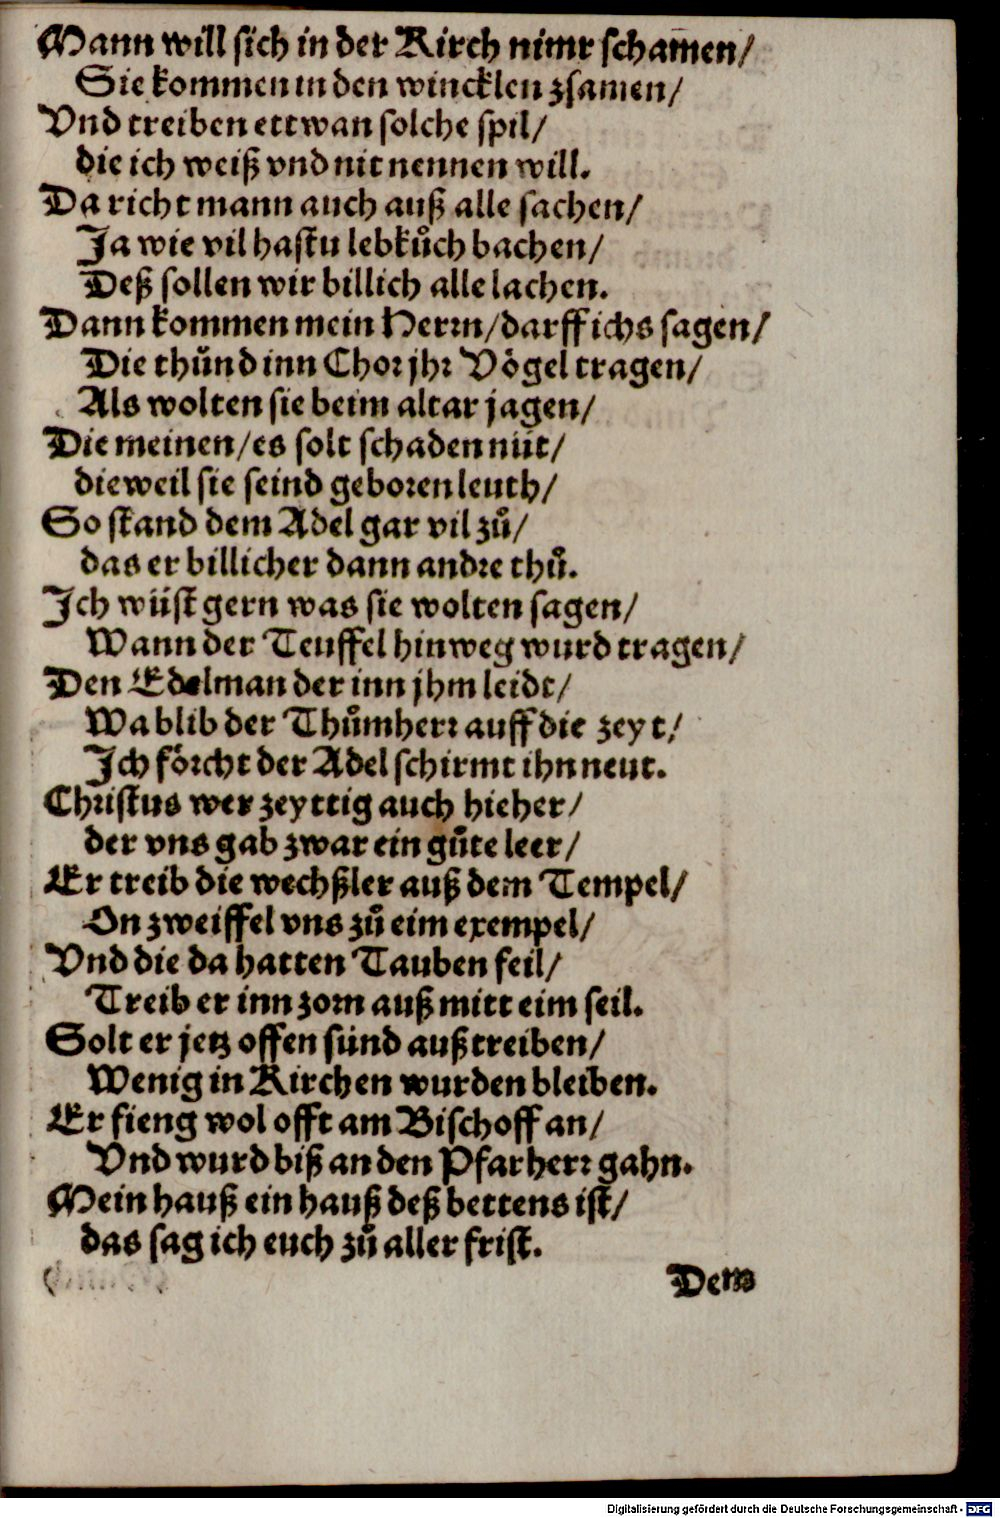 Mann will sich in der Kirch nimr scham̄en/
Sie kommen in den wincklen zsamen/
Vnd treiben ettwan solche spil/
die ich weiß vnd nit nennen will.
Da richt mann auch auß alle sachen/
Ja wie vil hastu lebkuͦch bachen/
Deß sollen wir billich alle lachen.
Dann kommen mein Herrn/darff ichs sagen/
Die thuͦnd inn Chor jhr Voͤgel tragen/
Als wolten sie beim altar jagen/
Die meinen/es solt schaden nüt/
dieweil sie seind geboren leuth/
So stand dem Adel gar vil zuͦ/
das er billicher dann andre thuͦ.
Jch wüst gern was sie wolten sagen/
Wann der Teuffel hinweg wurd tragen/
Den Edelman der inn jhm leidt/
Wa blib der Thuͦmherr auff die zeyt/
Jch foͤrcht der Adel schirmt ihn neut.
Christus wer zeyttig auch hieher/
der vns gab zwar ein guͦte leer/
Er treib die wechßler auß dem Tempel/
On zweiffel vns zuͦ eim exempel/
Vnd die da hatten Tauben feil/
Treib er inn zorn auß mitt eim seil.
Solt er jetz offen sünd außtreiben/
Wenig in Kirchen wurden bleiben.
Er fieng wol offt am Bischoff an/
Vnd wurd biß an den Pfarherr gahn.
Mein hauß ein hauß deß bettens ist/
das sag ich euch zuͦ aller frist.
Dem
Digitalisierung gefördert durch die Deutsche Forschungsgemeinschaft - DFG